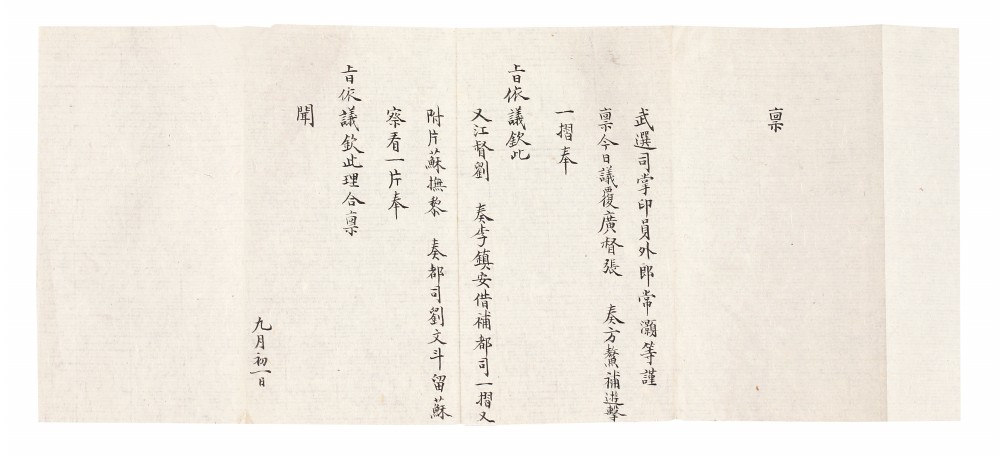 稟
武選司掌印員外郎常灝等謹
稟今日議覆廣督張　奏方鰲補遊擊
一摺奉
旨依議欽此
又江督劉　奏李鎮安借補都司一摺又
附片蘇撫黎　奏都司劉文斗留蘇
察看一片奉
旨依議欽此理合稟
聞
九月初一日